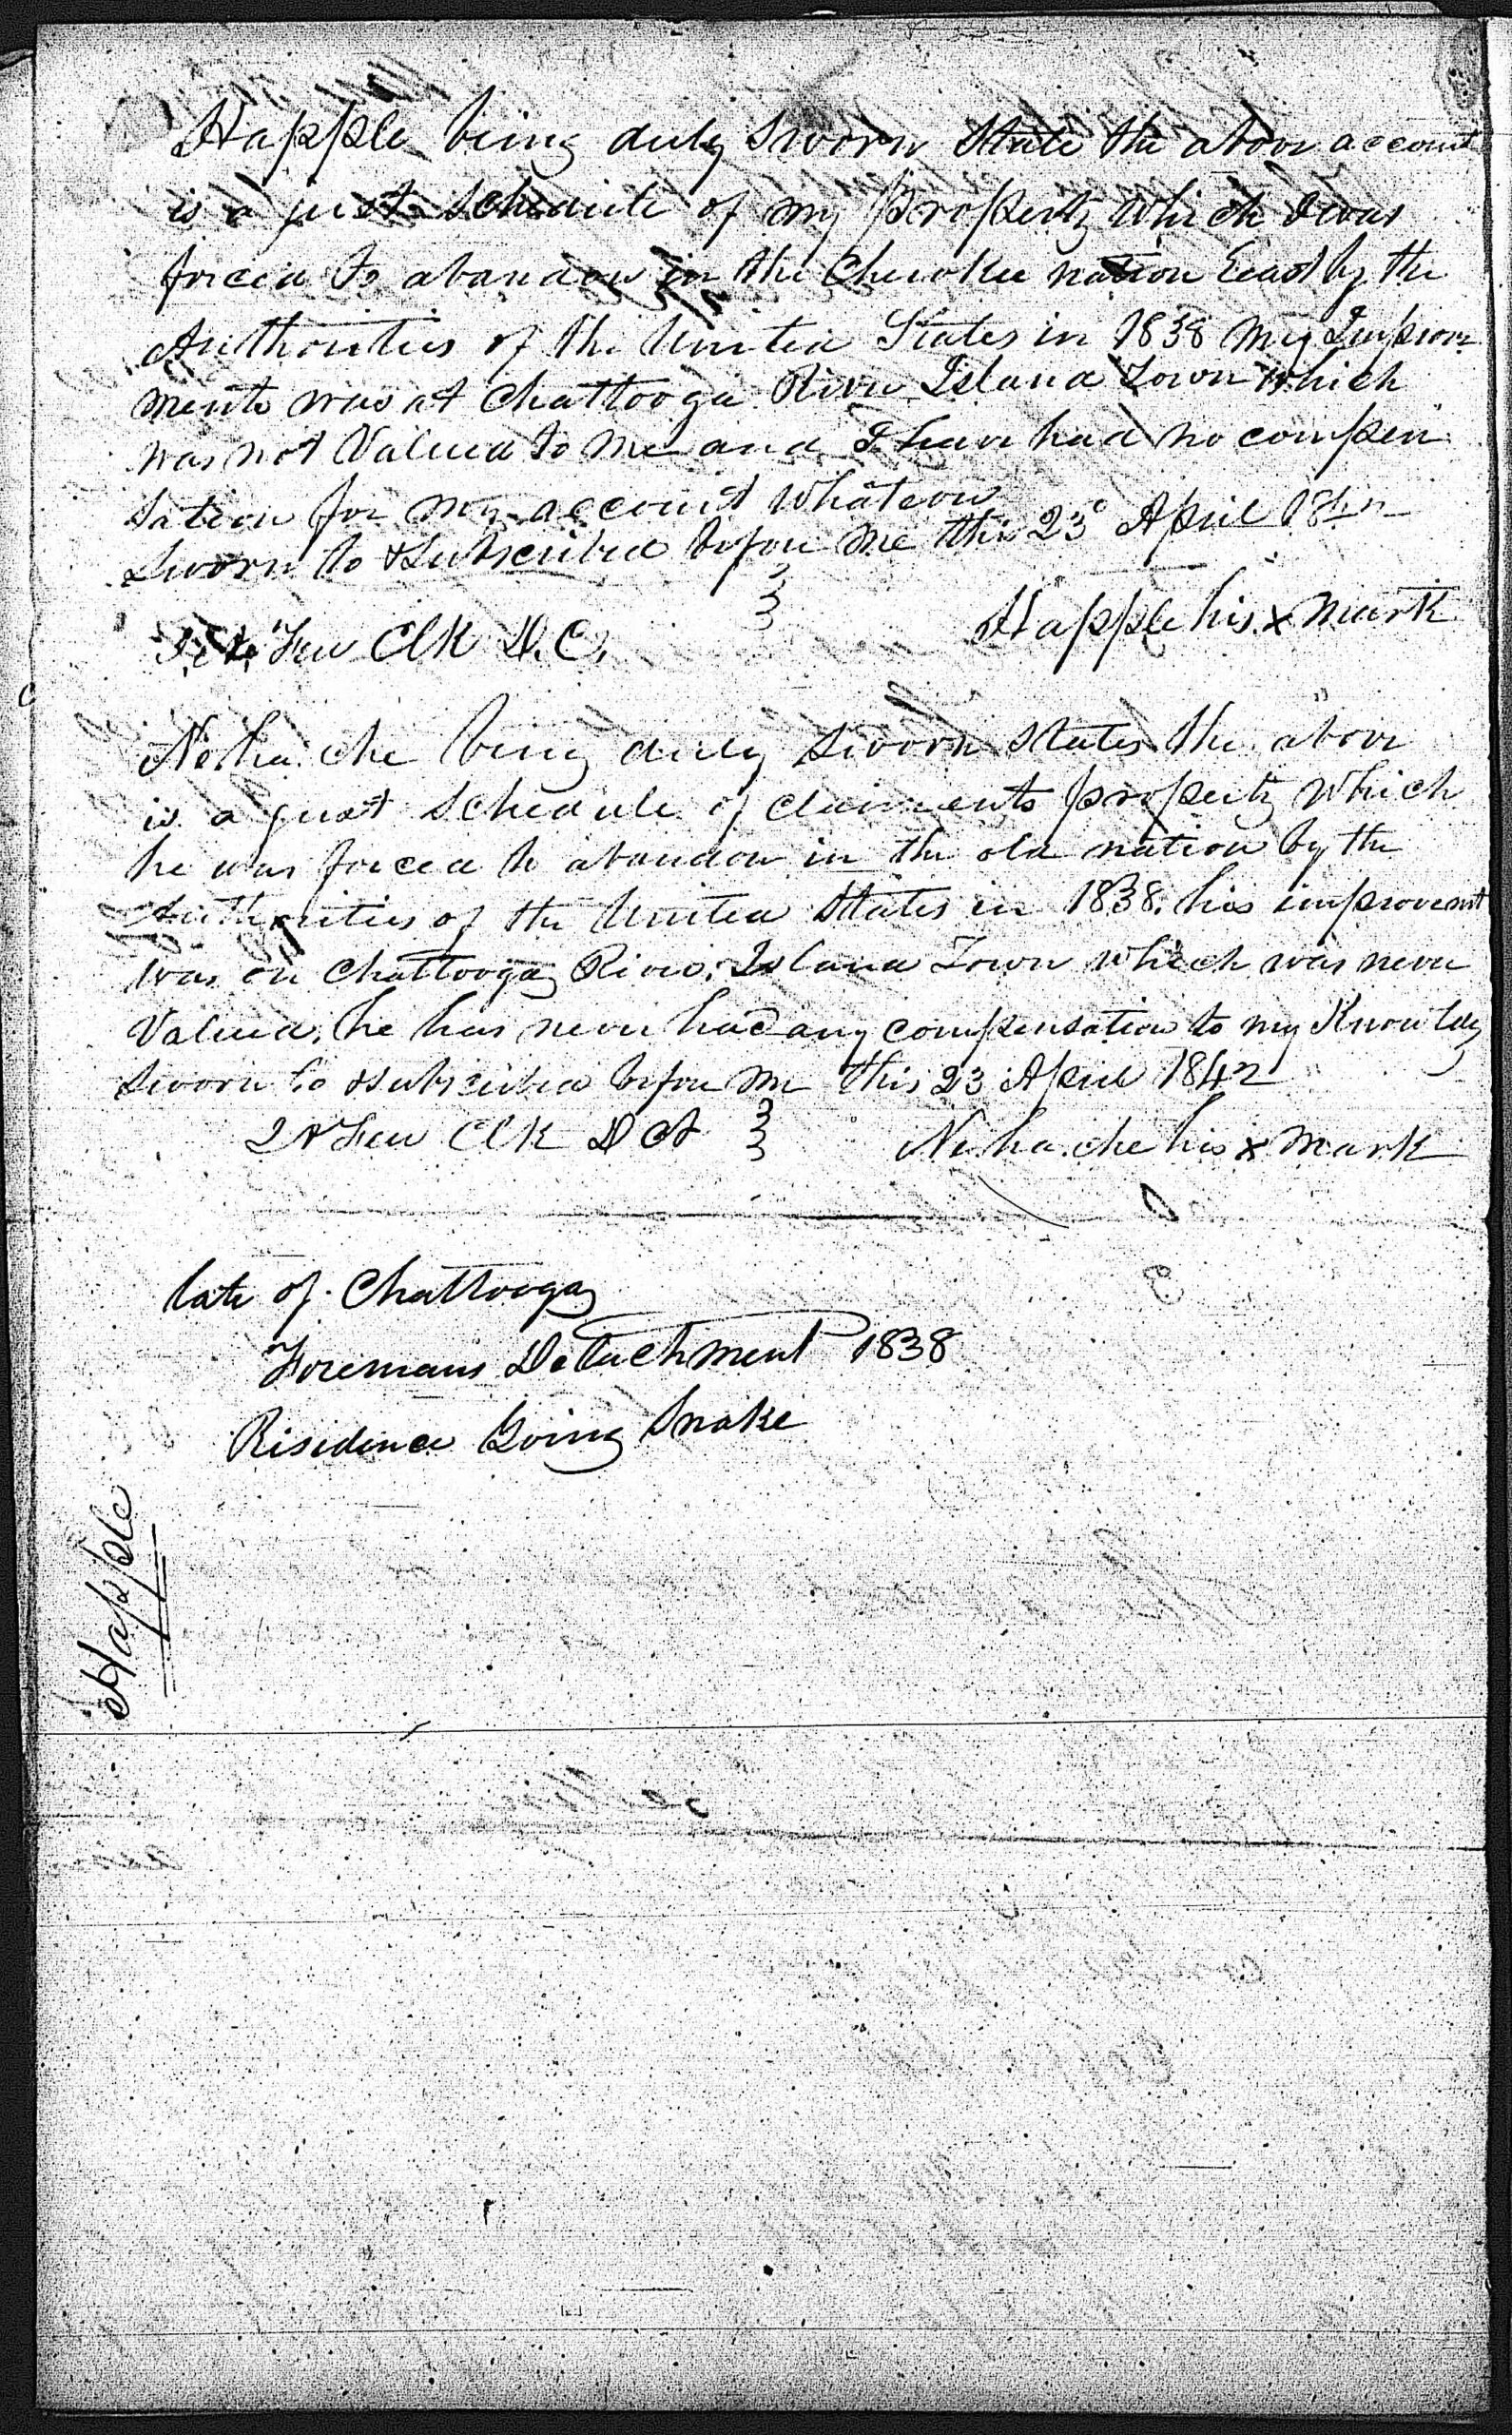 Happle being duly sworn State the above account
is a just schedule of my property which I was
forced to abandon in the Cherokee nation East by the
Authorities of the United States in 1838 my Improve
ments was at Chattooga River Island Town which
was not Valued to me and I have had no compen
sation for my account whatever
Sworn to & subscribed before me this 23d April 1842
Few Clk D.C.
Happle his x mark
Nehuche being duly sworn states the above
is a just schedule of claiments property which
he was forced to abandon in the old nation by the
Authorities of the United States in 1838. his improvemt
was on Chattooga River, Island Town which was never
Valued, he has never had any compensation to my Knowledg
Sworn to & subscribed before me this 23 April 1842
Few Clk D Ct
Nehuche his x mark
late of Chattooga
Foremans Detachment 1838
Residence Going Snake
Happle